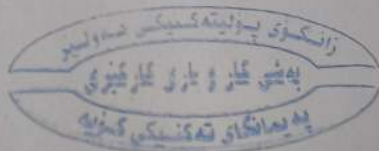 زانکۆی پۆلیتەکنیکی هەولێر
بەشی کار و باری کارگێڕی
پەیمانگای تەکنیکی کۆیە